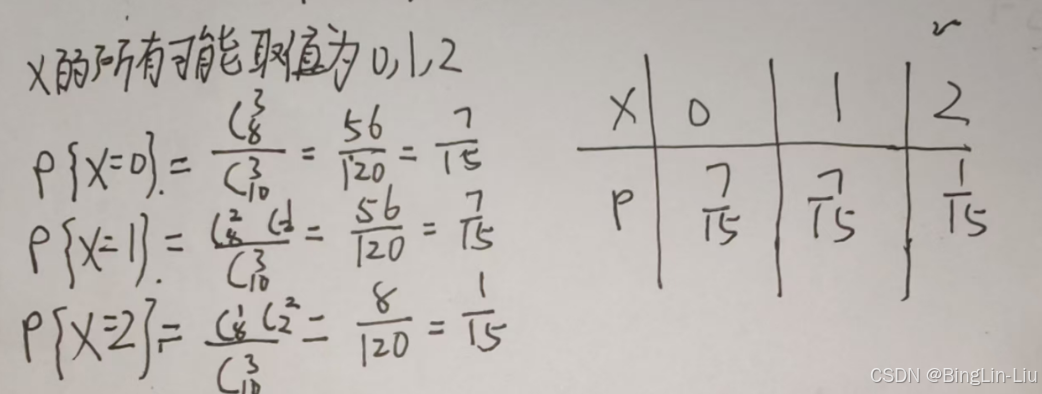 X的所有可能取值为0,1,2
P{X=0}. = C₈³/C₁₀³ = 56/120 = 7/15
P{X=1}. = C₈² C₂¹/C₁₀³ = 56/120 = 7/15
P{X=2}. = C₈¹ C₂²/C₁₀³ = 8/120 = 1/15
X 0 1 2
P 7/15 7/15 1/15
CSDN @BingLin-Liu